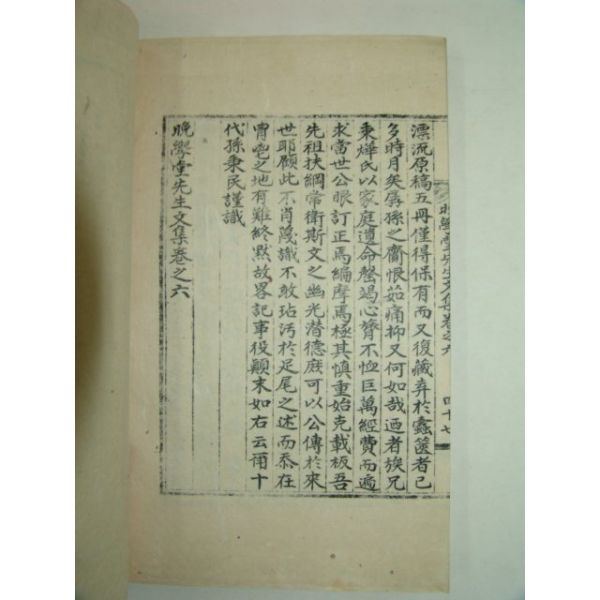 漂況原稿五冊僅得保有而又復藏弆於蠹篋者已
多時月矣孱孫之齎恨茹痛抑又何如哉迺者族兄
秉燁氏以家庭遺命罄竭心膂不恤巨萬經費而遍
求當世公眼訂正焉編摩焉極其慎重始克載板吾
先祖扶綱常衛斯文之幽光潛德庶可以公傳於來
世耶顧此不肖蔑識不敢玷汚於足尾之述而忝在
冑嗣之地有難終默故畧記事役顚末如右云爾十
代孫秉民謹識
晩學堂先生文集卷之六
晩學堂先生文集卷之六
四十七